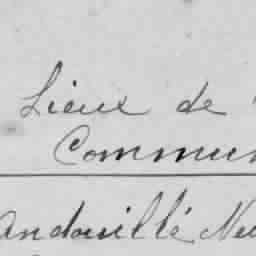 Lieux de
Commun
Andouillé Neu